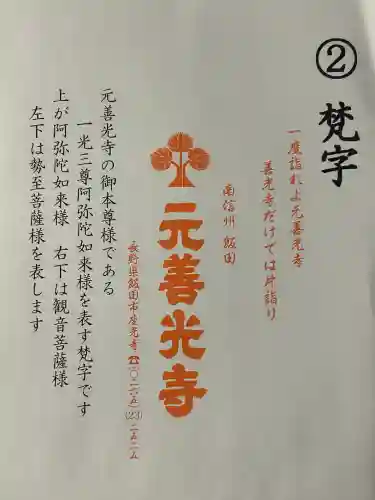 ② 梵字
一度詣れよ元善光寺
善光寺だけでは片詣り
南信州 飯田
元善光寺
長野県飯田市座光寺☎〇二六五(23)二五二五
元善光寺の御本尊様である
一光三尊阿弥陀如来様を表す梵字です
上が阿弥陀如来様 右下は観音菩薩様
左下は勢至菩薩様を表します